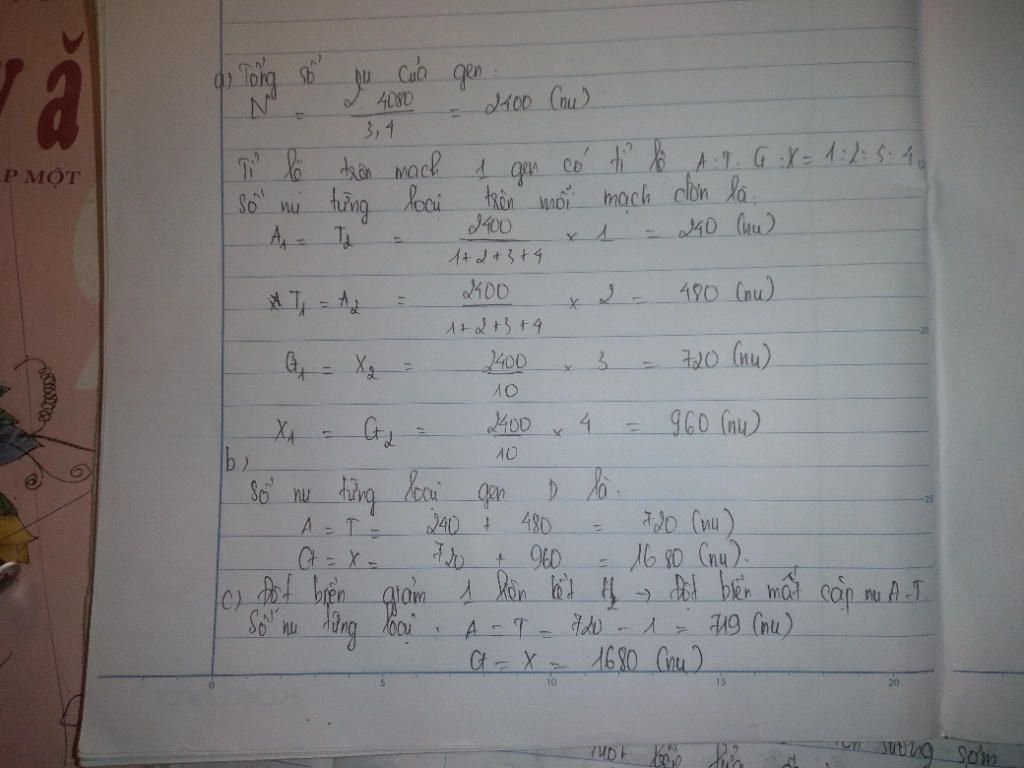 ă
ẬP MỘT
a) Tổng số nu của gen:
N = 2 . 4080 / 3,4 = 2400 (nu)
Tỉ lệ trên mạch 1 gen có tỉ lệ A : T : G : X = 1 : 2 : 3 : 4
Số nu từng loại trên mỗi mạch đơn là:
A₁ = T₂ = 2400 / 1+2+3+4 × 1 = 240 (nu)
T₁ = A₂ = 2400 / 1+2+3+4 × 2 = 480 (nu)
G₁ = X₂ = 2400 / 10 × 3 = 720 (nu)
X₁ = G₂ = 2400 / 10 × 4 = 960 (nu)
b)
Số nu từng loại gen D là:
A = T = 240 + 480 = 720 (nu)
G = X = 720 + 960 = 1680 (nu).
c) Đột biến giảm 1 liên kết H₂ → Đột biến mất cặp nu A-T.
Số nu từng loại: A = T = 720 - 1 = 719 (nu)
G = X = 1680 (nu)
0 5 10 15 20
25
sương sớm